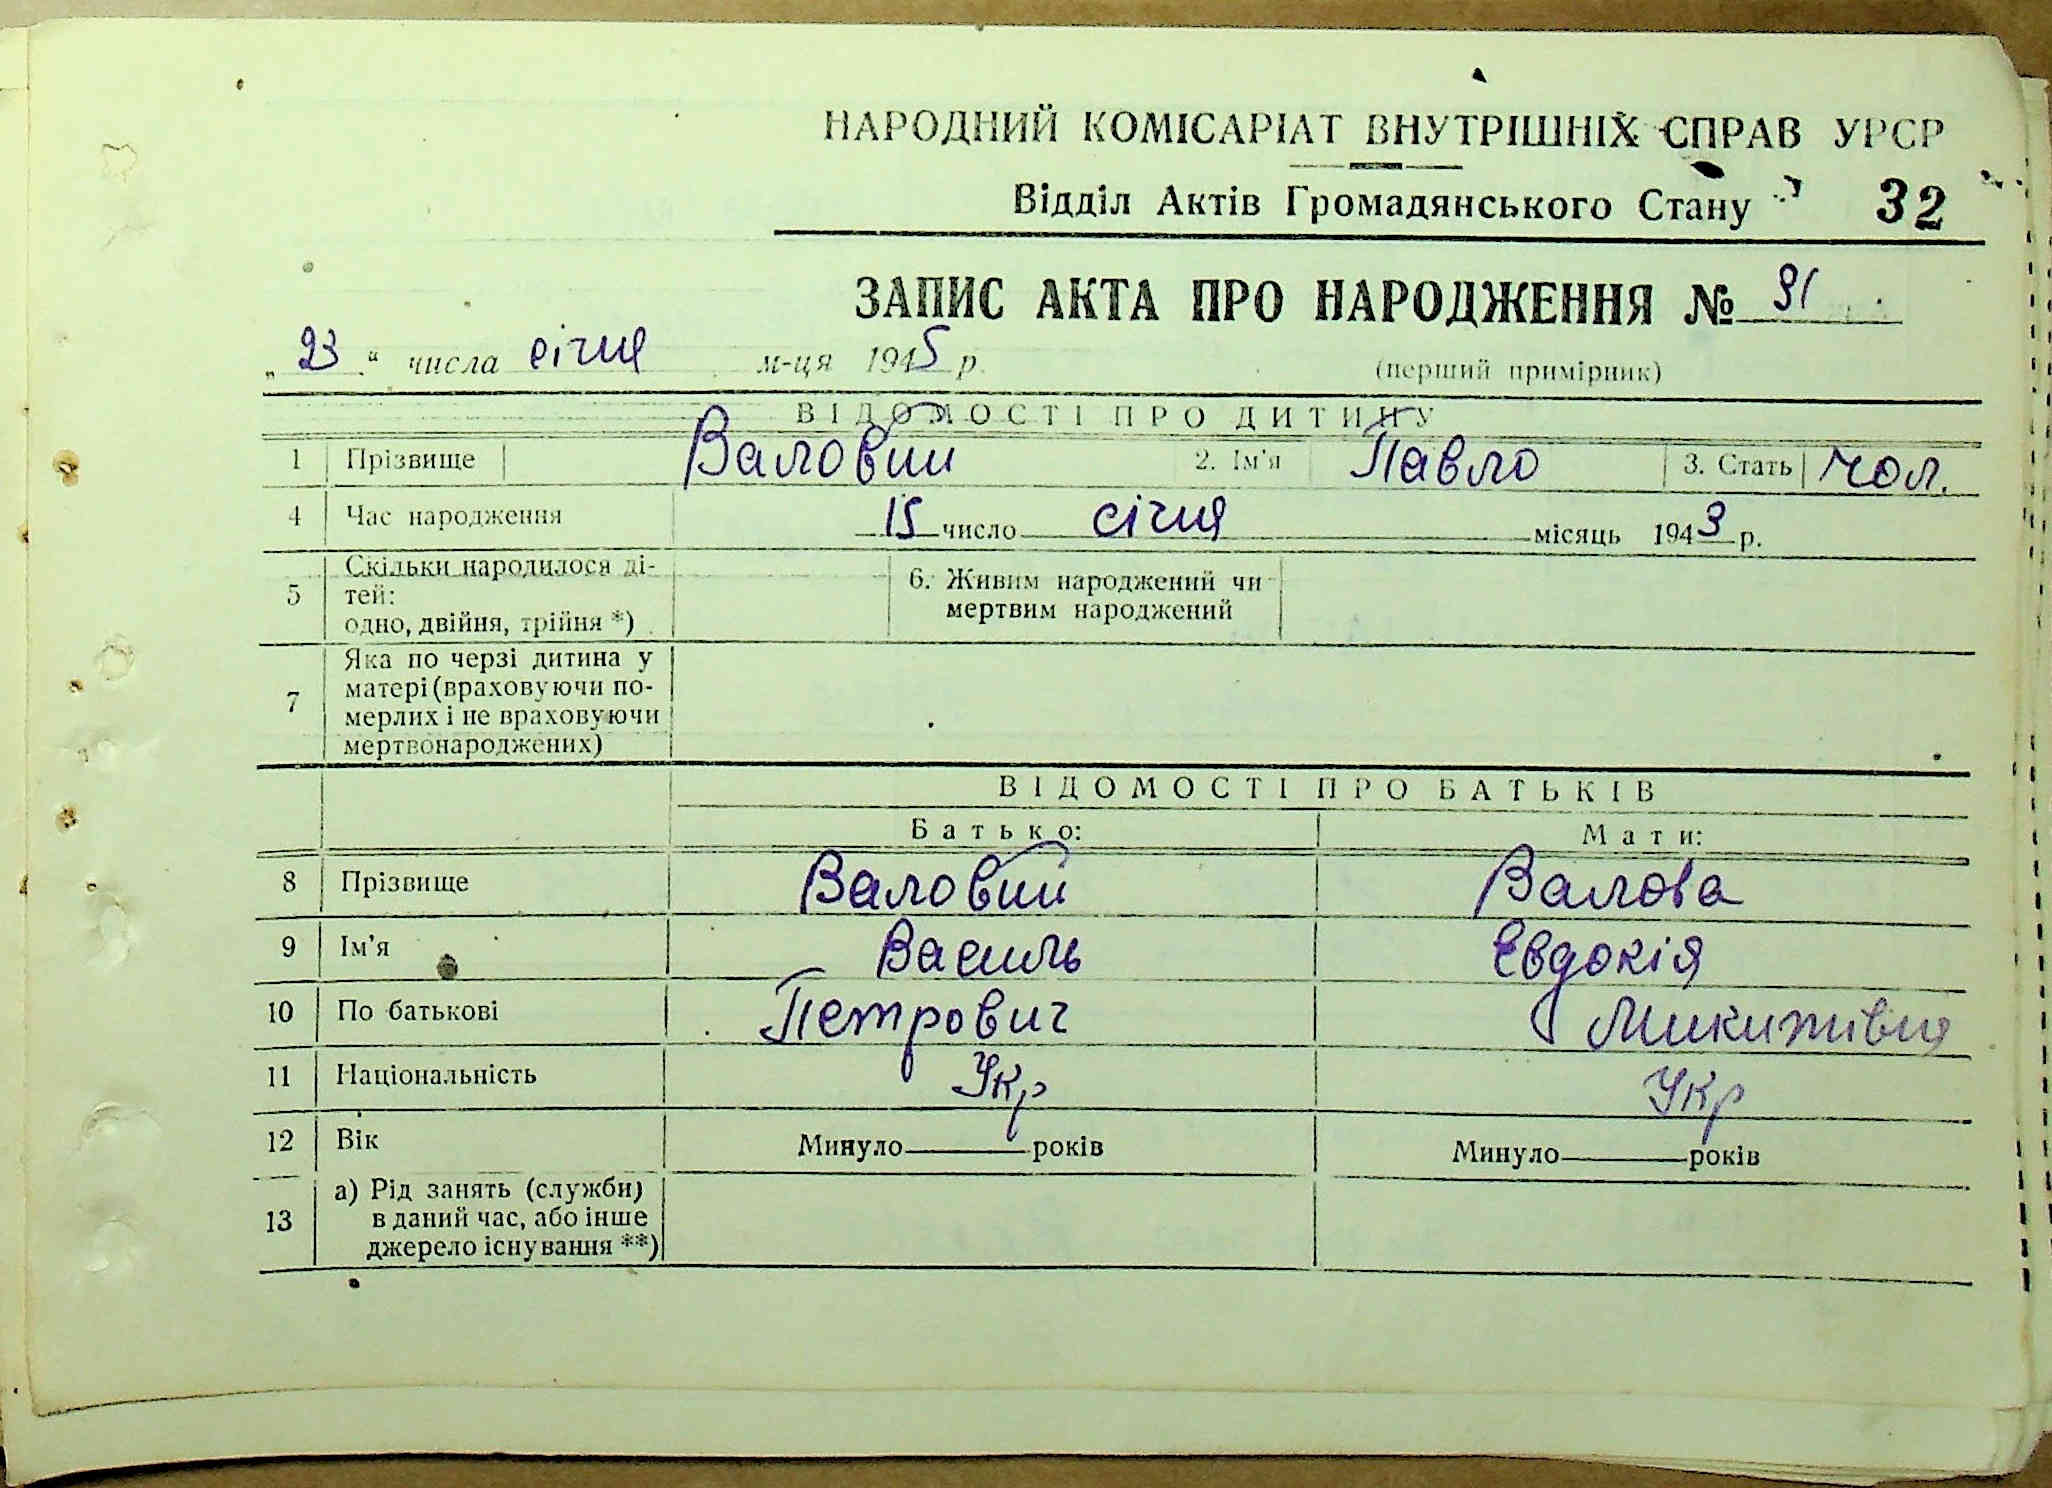 НАРОДНИЙ КОМІСАРІАТ ВНУТРІШНІХ СПРАВ УРСР
Відділ Актів Громадянського Стану 32
ЗАПИС АКТА ПРО НАРОДЖЕННЯ № 91
„23“ числа січня м-ця 1945 р. (перший примірник)
ВІДОМОСТІ ПРО ДИТИНУ
1 Прізвище Валовий 2. Ім'я Павло 3. Стать чол.
4 Час народження 15 число січня місяць 1943 р.
5 Скільки народилося ді-
тей:
одно, двійня, трійня *)
6. Живим народжений чи
мертвим народжений
7 Яка по черзі дитина у
матері (враховуючи по-
мерлих і не враховуючи
мертвонароджених)
ВІДОМОСТІ ПРО БАТЬКІВ
Батько: Мати:
8 Прізвище Валовий Валова
9 Ім'я Василь Евдокія
10 По батькові Петрович Микитівна
11 Національність Укр Укр
12 Вік Минуло років Минуло років
13 а) Рід занять (служби)
в даний час, або інше
джерело існування **)